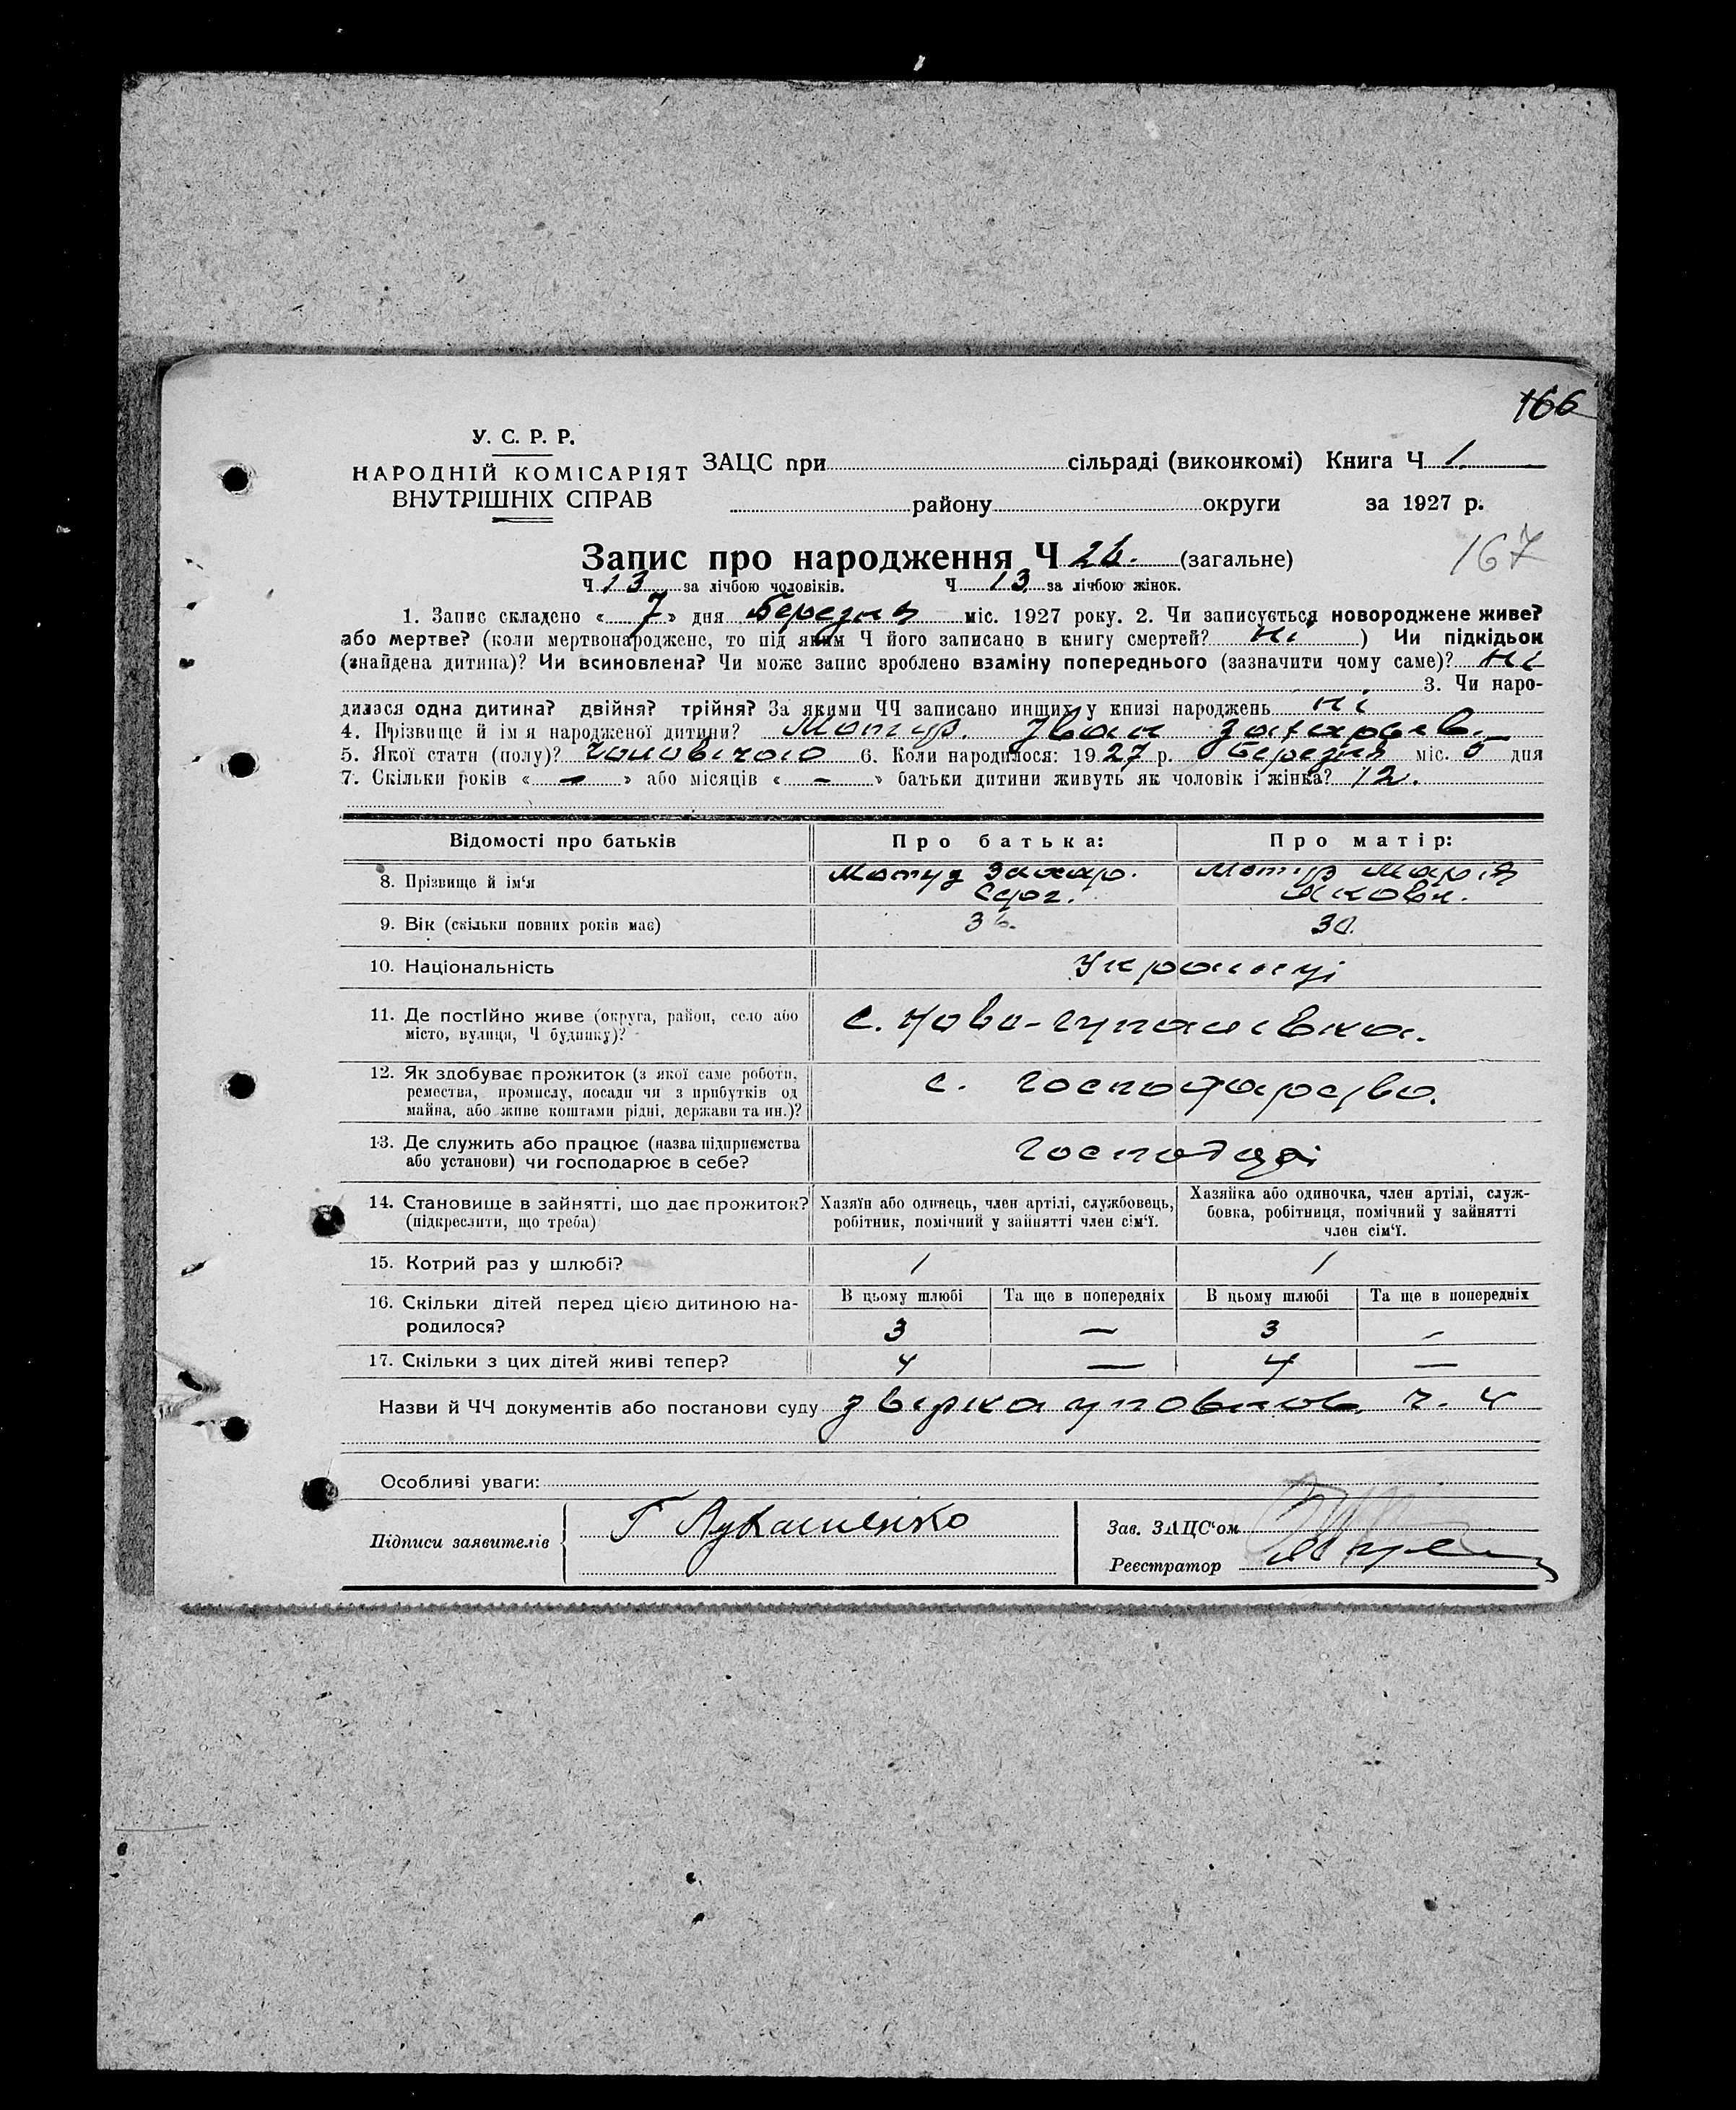 166
У. С. Р. Р.
НАРОДНІЙ КОМІСАРІЯТ
ВНУТРІШНІХ СПРАВ
ЗАЦС при сільраді (виконкомі) Книга Ч 1
району округи за 1927 р.
167
Запис про народження Ч 26. (загальне)
Ч 13 за лічбою чоловіків. Ч 13 за лічбою жінок.
1. Запис складено « 7 » дня Березня міс. 1927 року. 2. Чи записується новороджене живе?
або мертве? (коли мертвонароджене, то під яким Ч його записано в книгу смертей? ні ) Чи підкідьок
(знайдена дитина)? Чи всиновлена? Чи може запис зроблено взаміну попереднього (зазначити чому саме)? ні
3. Чи наро-
дилася одна дитина? двійня? трійня? За якими ЧЧ записано инших у книзі народжень ні
4. Прізвище й ім'я народженої дитини? Іван Захаров.
5. Якої стати (полу)? чоловічого 6. Коли народилося: 1927 р. Березня міс. 5 дня
7. Скільки років « — » або місяців « — » батьки дитини живуть як чоловік і жінка? 12.
Відомості про батьків Про батька: Про матір:
8. Прізвище й ім'я Захар. Марія
Серг. Яковл.
9. Вік (скільки повних років має) 36. 30.
10. Національність Українці
11. Де постійно живе (округа, район, село або
місто, вулиця, Ч будинку)? с. Ново-
12. Як здобуває прожиток (з якої саме роботи,
ремества, промислу, посади чи з прибутків од
майна, або живе коштами рідні, держави та ин.)? с. господарство.
13. Де служить або працює (назва підприємства
або установи) чи господарює в себе?
14. Становище в зайнятті, що дає прожиток?
(підкреслити, що треба)
Хазяїн або одинець, член артілі, службовець,
робітник, помічний у зайнятті член сім'ї.
Хазяйка або одиночка, член артілі, служ-
бовка, робітниця, помічний у зайнятті
член сім'ї.
15. Котрий раз у шлюбі? 1 1
16. Скільки дітей перед цією дитиною на-
родилося?
В цьому шлюбі Та ще в попередніх В цьому шлюбі Та ще в попередніх
3 — 3 —
17. Скільки з цих дітей живі тепер? 4 — 4 —
Назви й ЧЧ документів або постанови суду ч. 4
Особливі уваги:
Підписи заявителів Г Лукашенко
Зав. ЗАЦС'ом
Реєстратор